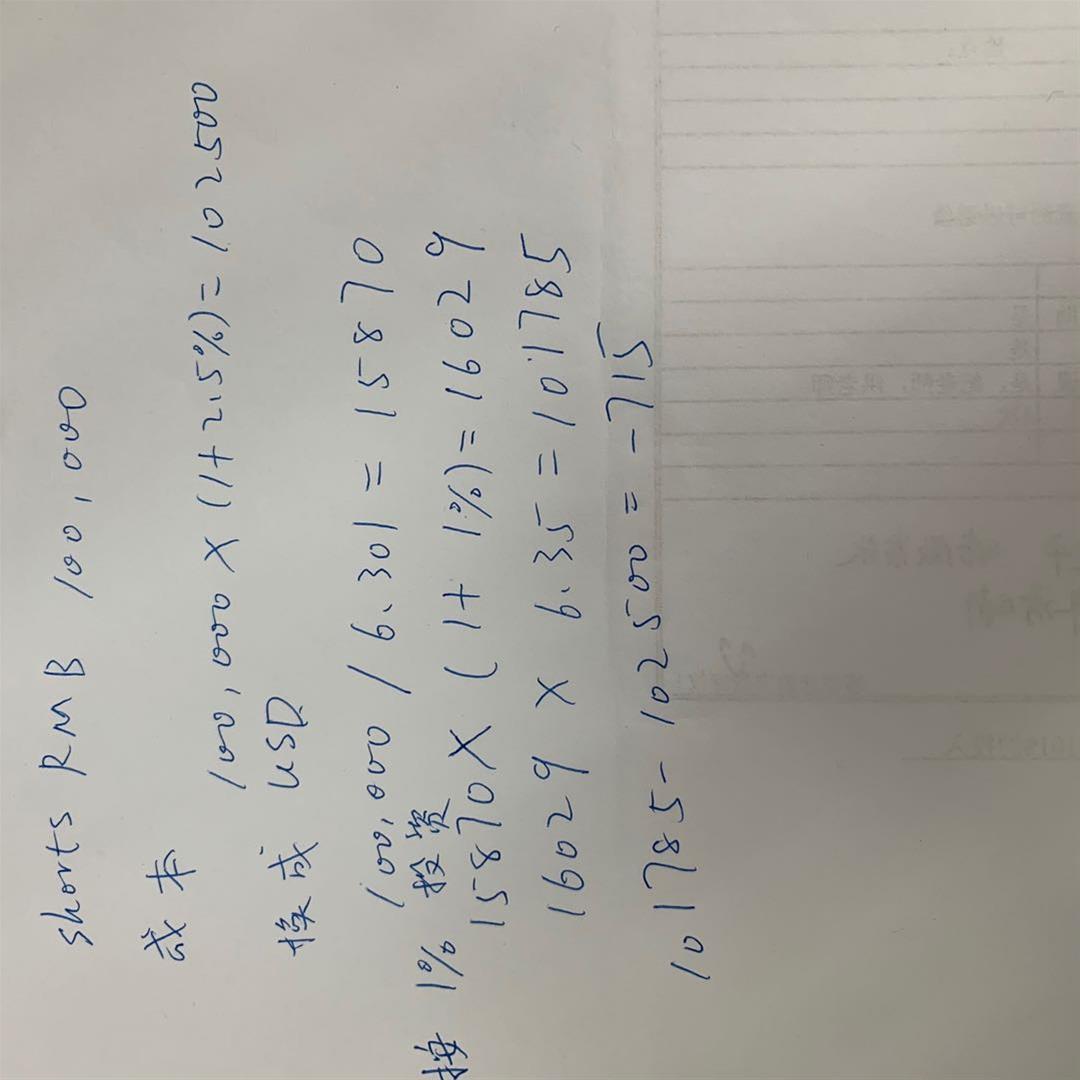 shorts RMB 100,000
成本
100,000 X (1+2.5%)=102500
换成 USD
100,000 / 6.301 = 15870
按 1% 投资
15870 X (1+1%)=16029
16029 X 6.35 = 101785
101785 - 102500 = -715